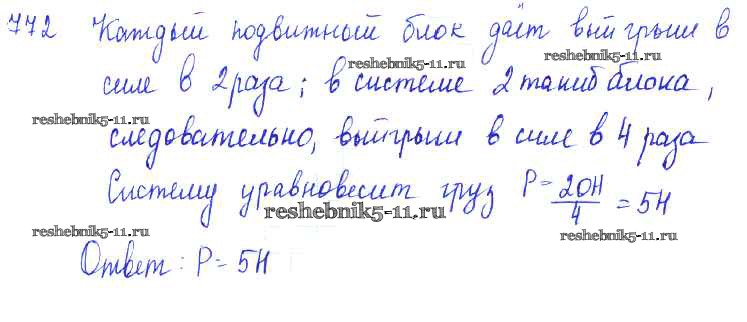 772 Каждый подвижный блок даёт выигрыш в
reshebnik5-11.ru
силе в 2 раза; в системе 2 таких блока,
reshebnik5-11.ru
следовательно, выигрыш в силе в 4 раза
Систему уравновесит груз P = 20Н/4 = 5Н
reshebnik5-11.ru
reshebnik5-11.ru
reshebnik5-11.ru
Ответ: P = 5Н